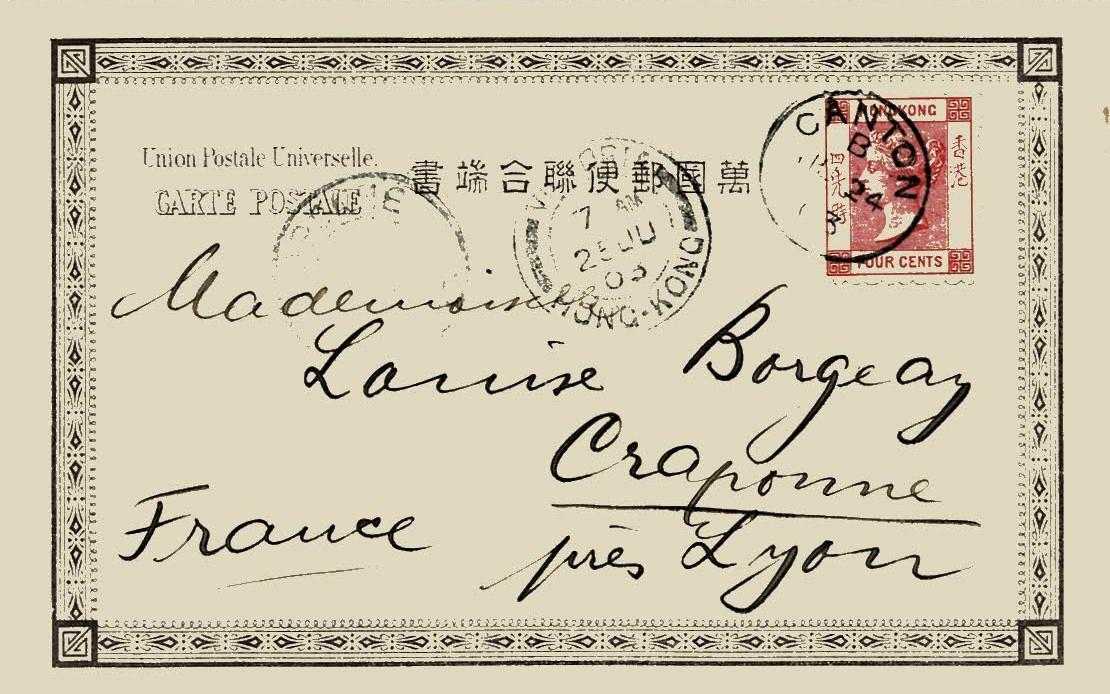 Union Postale Universelle.
CARTE POSTALE
書端合聯便郵國萬
HONGKONG
香港
四先時
FOUR CENTS
CANTON
B
24
VICTORIA
7 AM
25 JU
03
HONG-KONG
Mademoiselle
Louise Borgeay
Craponne
près Lyon
France